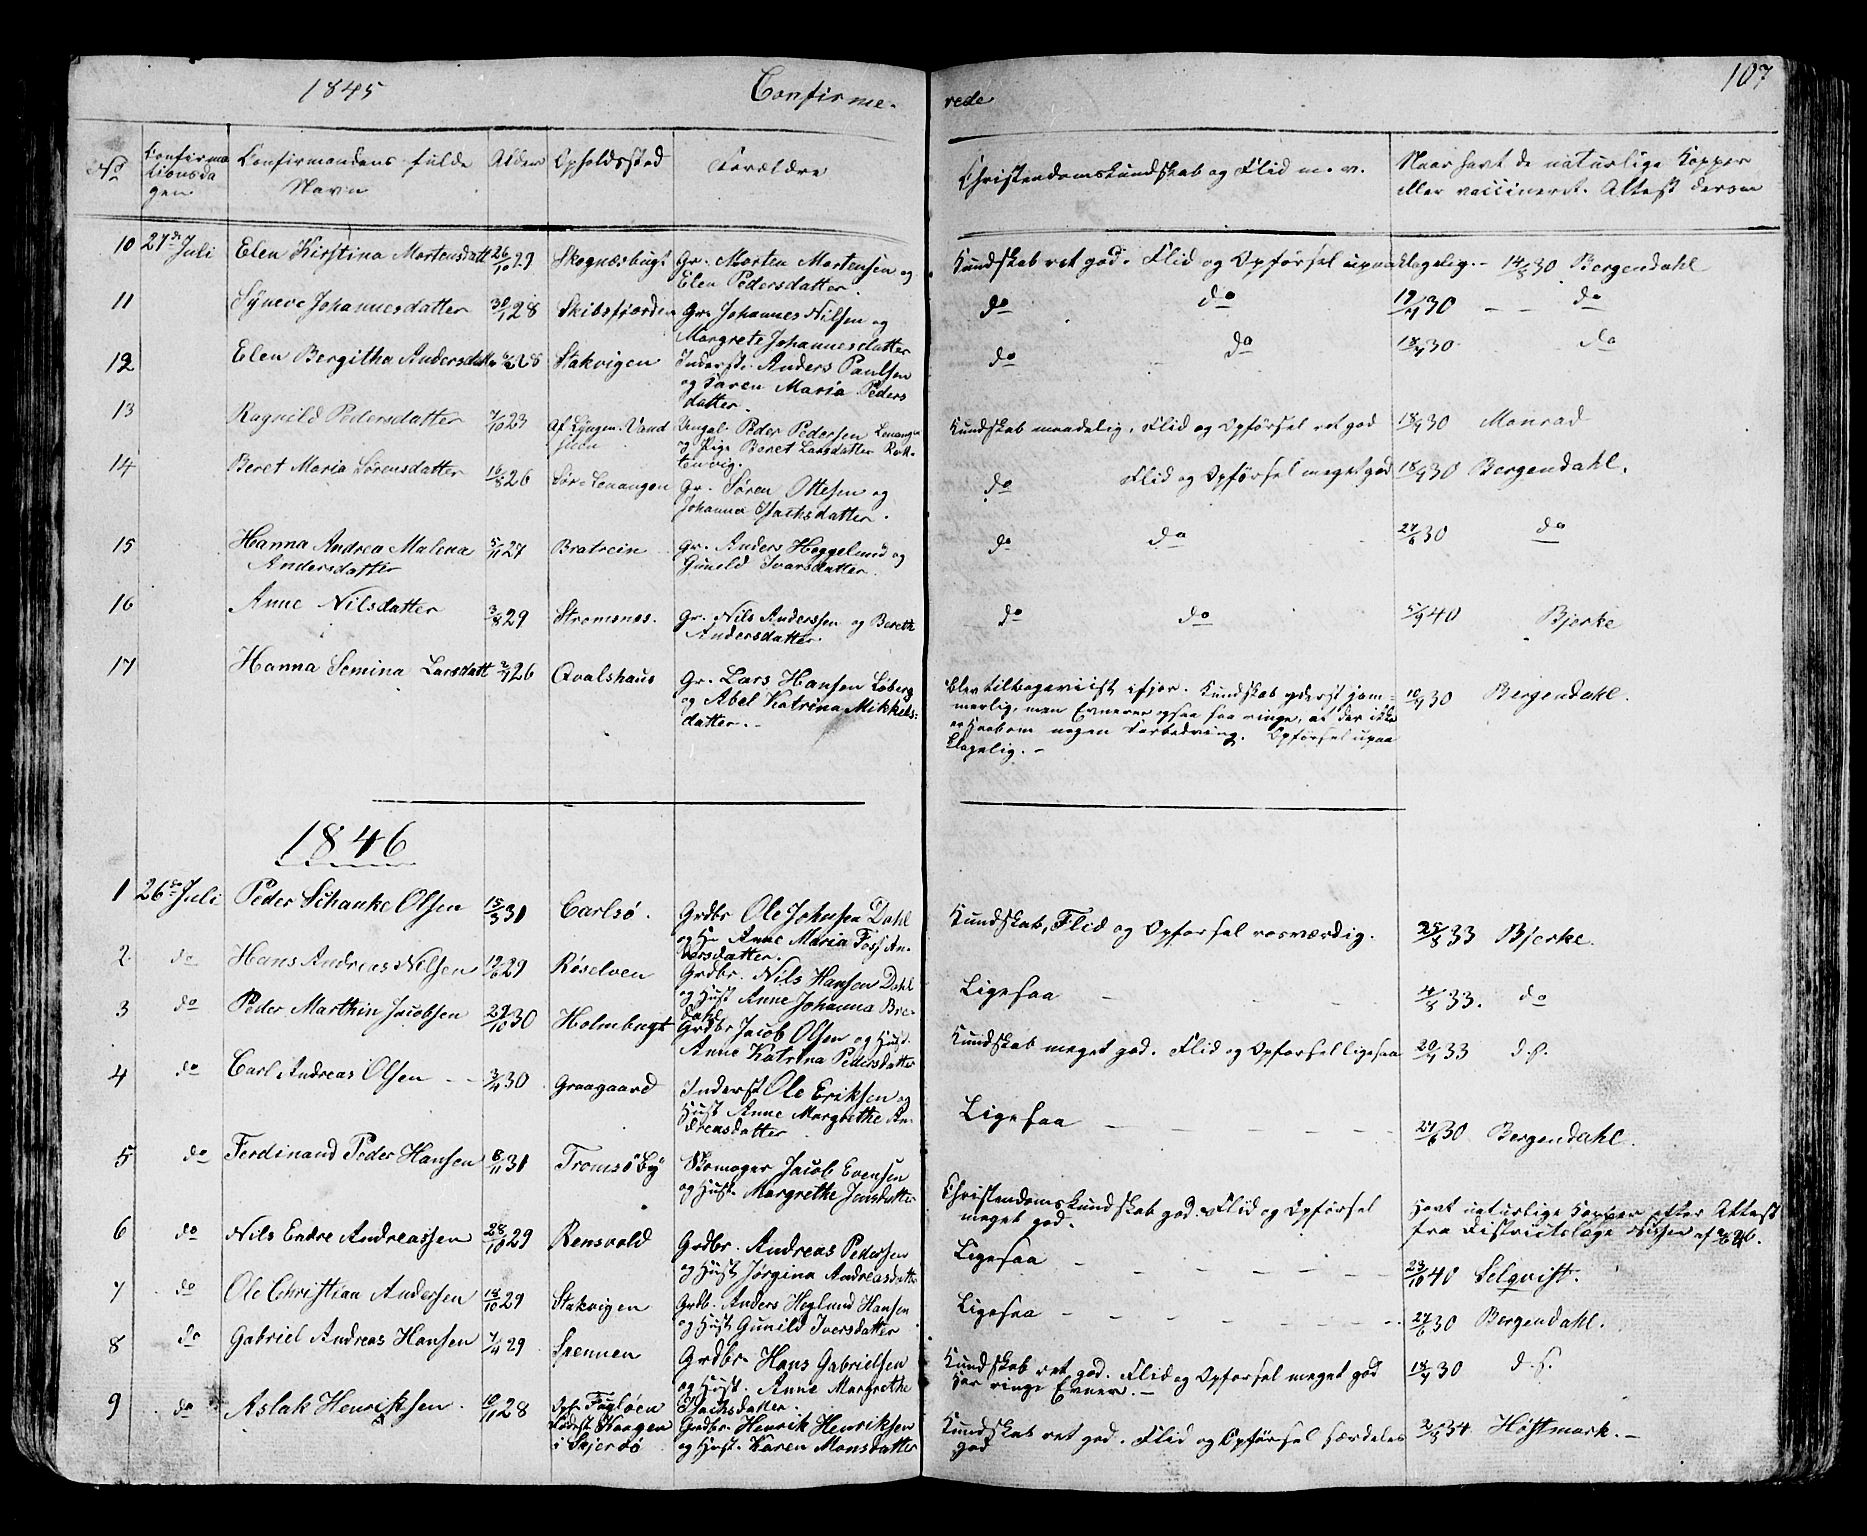 1845
Confirme-
rede
107
No
Confirma
tionsda
gen
Confirmandens fulde
Navn
Alder
Opholdssted
Forældre
Christendomskundskab og Flid m. v.
Naar havt de naturlige Kopper
eller vaccineret. Attest derom
10 27de Juli Elen Kirstina Mortensdatt 26/10 29 Skognæsbugt Gr. Morten Mortensen og
Elen Pedersdatter.
Kundskab ret god. Flid og Opførsel upaaklagelig. - 14/8 30 Bergendahl
11 Syneve Johannesdatter 30/1 28 Skibsfjorden Gr. Johannes Nilsen og
Margrete Johannesdatter
do do 19/7 30 - - do
12 Elen Bergitha Andersdatt 28 Stakvigen Inderst. Anders Paulsen
og Maren Maria Peders
datter.
do do 18/7 30 do
13 Ragnild Pedersdatter 7/10 23 af Lyngen. Vand
Ungal Peder Pedersen Lenangen
og Pige Beret Larsdatter Rot-
tenvig.
Kundskab maadelig, Flid og Opførsel ret god 18/9 30 Monrad
14 Beret Maria Sørensdatter 16/8 26 Sør-Lenangen Gr. Søren Ottesen og
Johanna Isachsdatter.
do Flid og Opførsel meget god 18/9 30 Bergendahl.
15 Hanna Andrea Malena 5/11 27 Bratrein Gr. Anders Heggelund og
Andersdatter Gunild Ivarsdatter.
do do 27/6 30 do
16 Anne Nilsdatter 3/8 29 Stromsnes. Gr. Nils Anderssen og Berethe
Andersdatter.
do do 5/9 40 Bjerke
17 Hanna Semina Larsdatt 2/7 26 Qvalshaus Gr. Lars Hansen Løberg
og Abel Katrina Mikkels-
datter. -
Blev tilbageviist ifjor. Kundskab yderst jam-
merlig, men Evnerne ogsaa saa ringe, at der ikke
er Haab om nogen Forbedring. Opførsel upaa
klagelig. -
10/7 30 Bergendahl.
1846
1 26de Juli Peder Schanke Olsen 15/3 31 Carlsø. Grdbr Ole Johnsen Dahl
og H. Anne Maria Foss An-
dersdatter.
Kundskab, Flid og Opførsel rosværdig. 25/8 33 Bjerke.
2. do Hans Andreas Nilsen 19/6 29 Røselven Grdbr. Nils Hansen Dahl
og Hust Anne Johanna Bre-
dahl
Ligesaa - - - 4/8 33. do
3 do Peder Marthin Jacobsen 29/10 30 Holmbugt Grdbr Jacob Olsen og Hust.
Anne Katrina Pedersdatter
Kundskab meget god. Flid og Opførsel ligesaa 20/7 33 d. s.
4 do Carl Andreas Olsen - - 3/4 30 Graagaard Inderst Ole Eriksen og
Hust Anne Margrethe An-
dreasdatter
Ligesaa - - - - - 27/6 30 Bergendahl.
5 do Ferdinand Peder Hansen 8/11 31 Tromsø By Skomager Jacob Evensen
og Hust. Margrethe Jensdatter
Christendomskundskab god. Flid og Opførsel
meget god.
Havt naturlige Kopper efter Attest
fra Districtslæge
6 do Nils Endre Andreassen 28/10 29 Rensvold Grdbr. Andreas Pedersen
og Hust Jørgina Andreasdatter
Ligesaa - - - - - 23/10 40 Selqvist.
7 do Ole Christian Andersen 18/10 29 Stakvigen Grdb. Anders Heglund Hansen
og Hust Gunild Iversdatter
Ligesaa - - - - - 27/6 30 Bergendahl.
8 do Gabriel Andreas Hansen 7/4 29 Spennen Grdbr. Hans Gabrielsen
og Hust. Anne Margrethe
Isachsdatter.
Kundskab ret god. Flid og Opførsel meget god
Har ringe Evner. -
18/7 30 d. s.
9 do Aslak Henriksen. 10/11 28 Fugløen
født Kaagen
i Skjervø
Grdbr. Henrik Henriksen
og Hust. Karen Monsdatter
Kundskab ret god. Flid og Opførsel særdeles
god
2/8 34 Høstmark. -